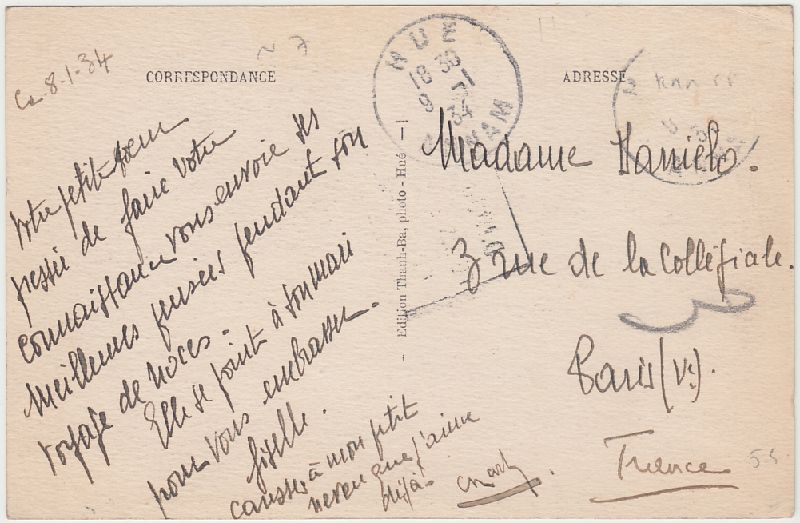 Co 8-1-34
CORRESPONDANCE
ADRESSE
HUE
18 30
9 -1
34
Votre petite soeur
pressée de faire votre
connaissance vous envoie ses
meilleures pensées pendant son
voyage de noces.
Elle se joint à son mari
pour vous embrasser.
Giselle.
à mon petit
neveu que j'aime
déjà.
Edition Thanh-Ba, photo - Hué
Madame Daniélo.
3 rue de la Collégiale.
Paris (Ve).
France